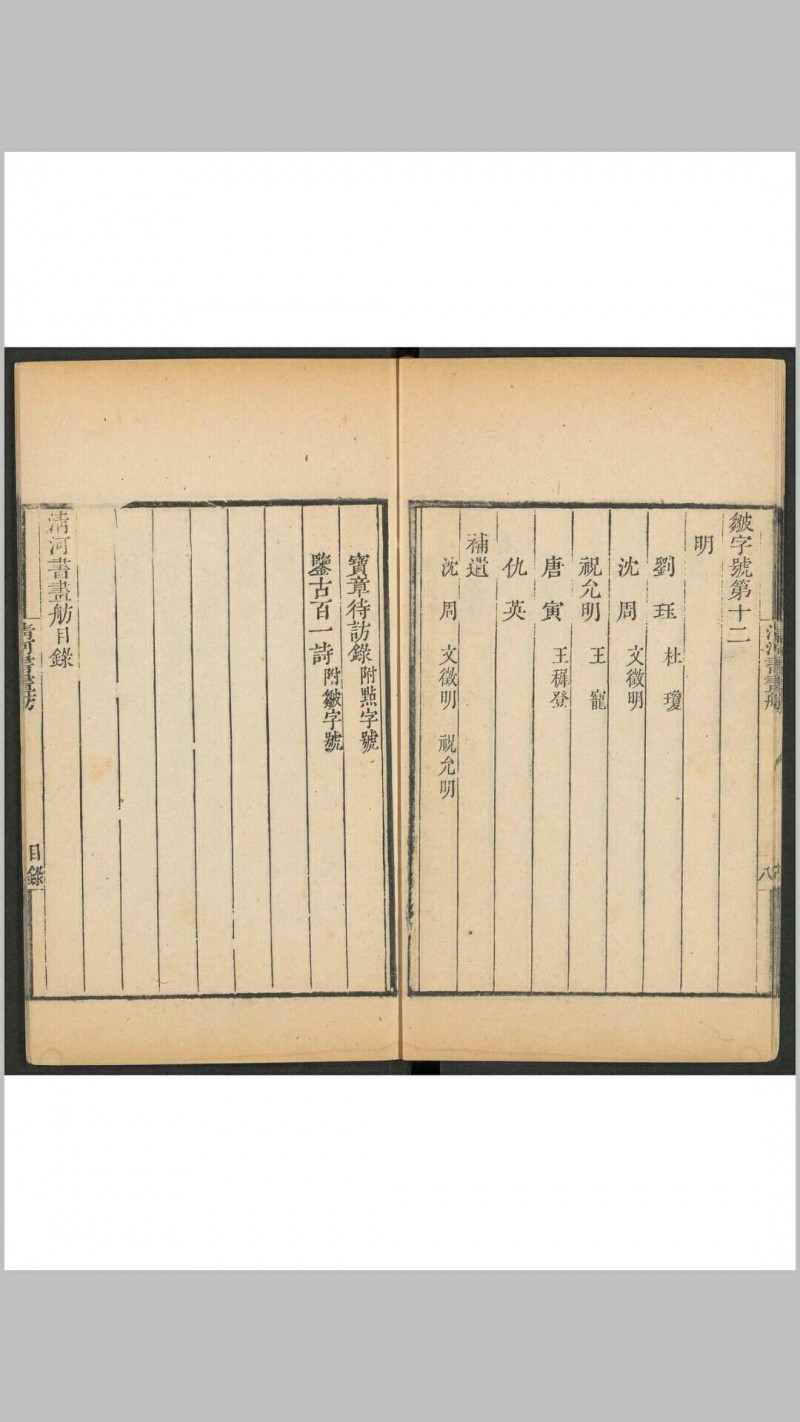 皴字號第十二
明
劉珏 杜瓊
沈周 文徵明
祝允明 王寵
唐寅 王穉登
仇英
補遺
沈周 文徵明 祝允明
寶章待訪錄 附點字號
鑒古百一詩 附皴字號
清河書畫舫目錄
清河書畫舫 目錄
清河書畫舫 八